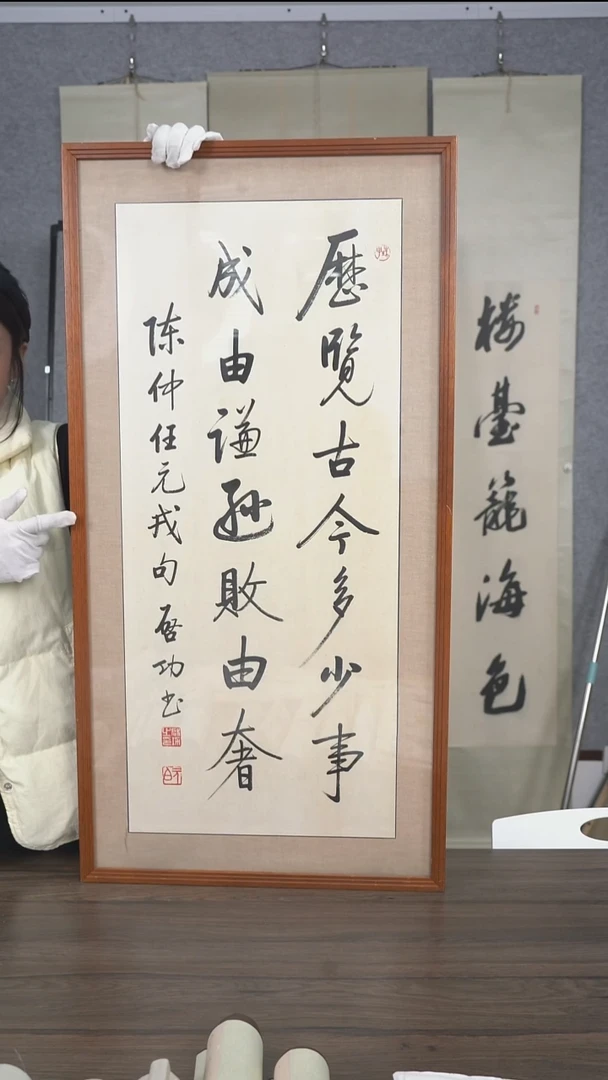 歷覽古今多少事
成由谦逊敗由奢
陈仲任元戎句 启功书
楼臺籠海色